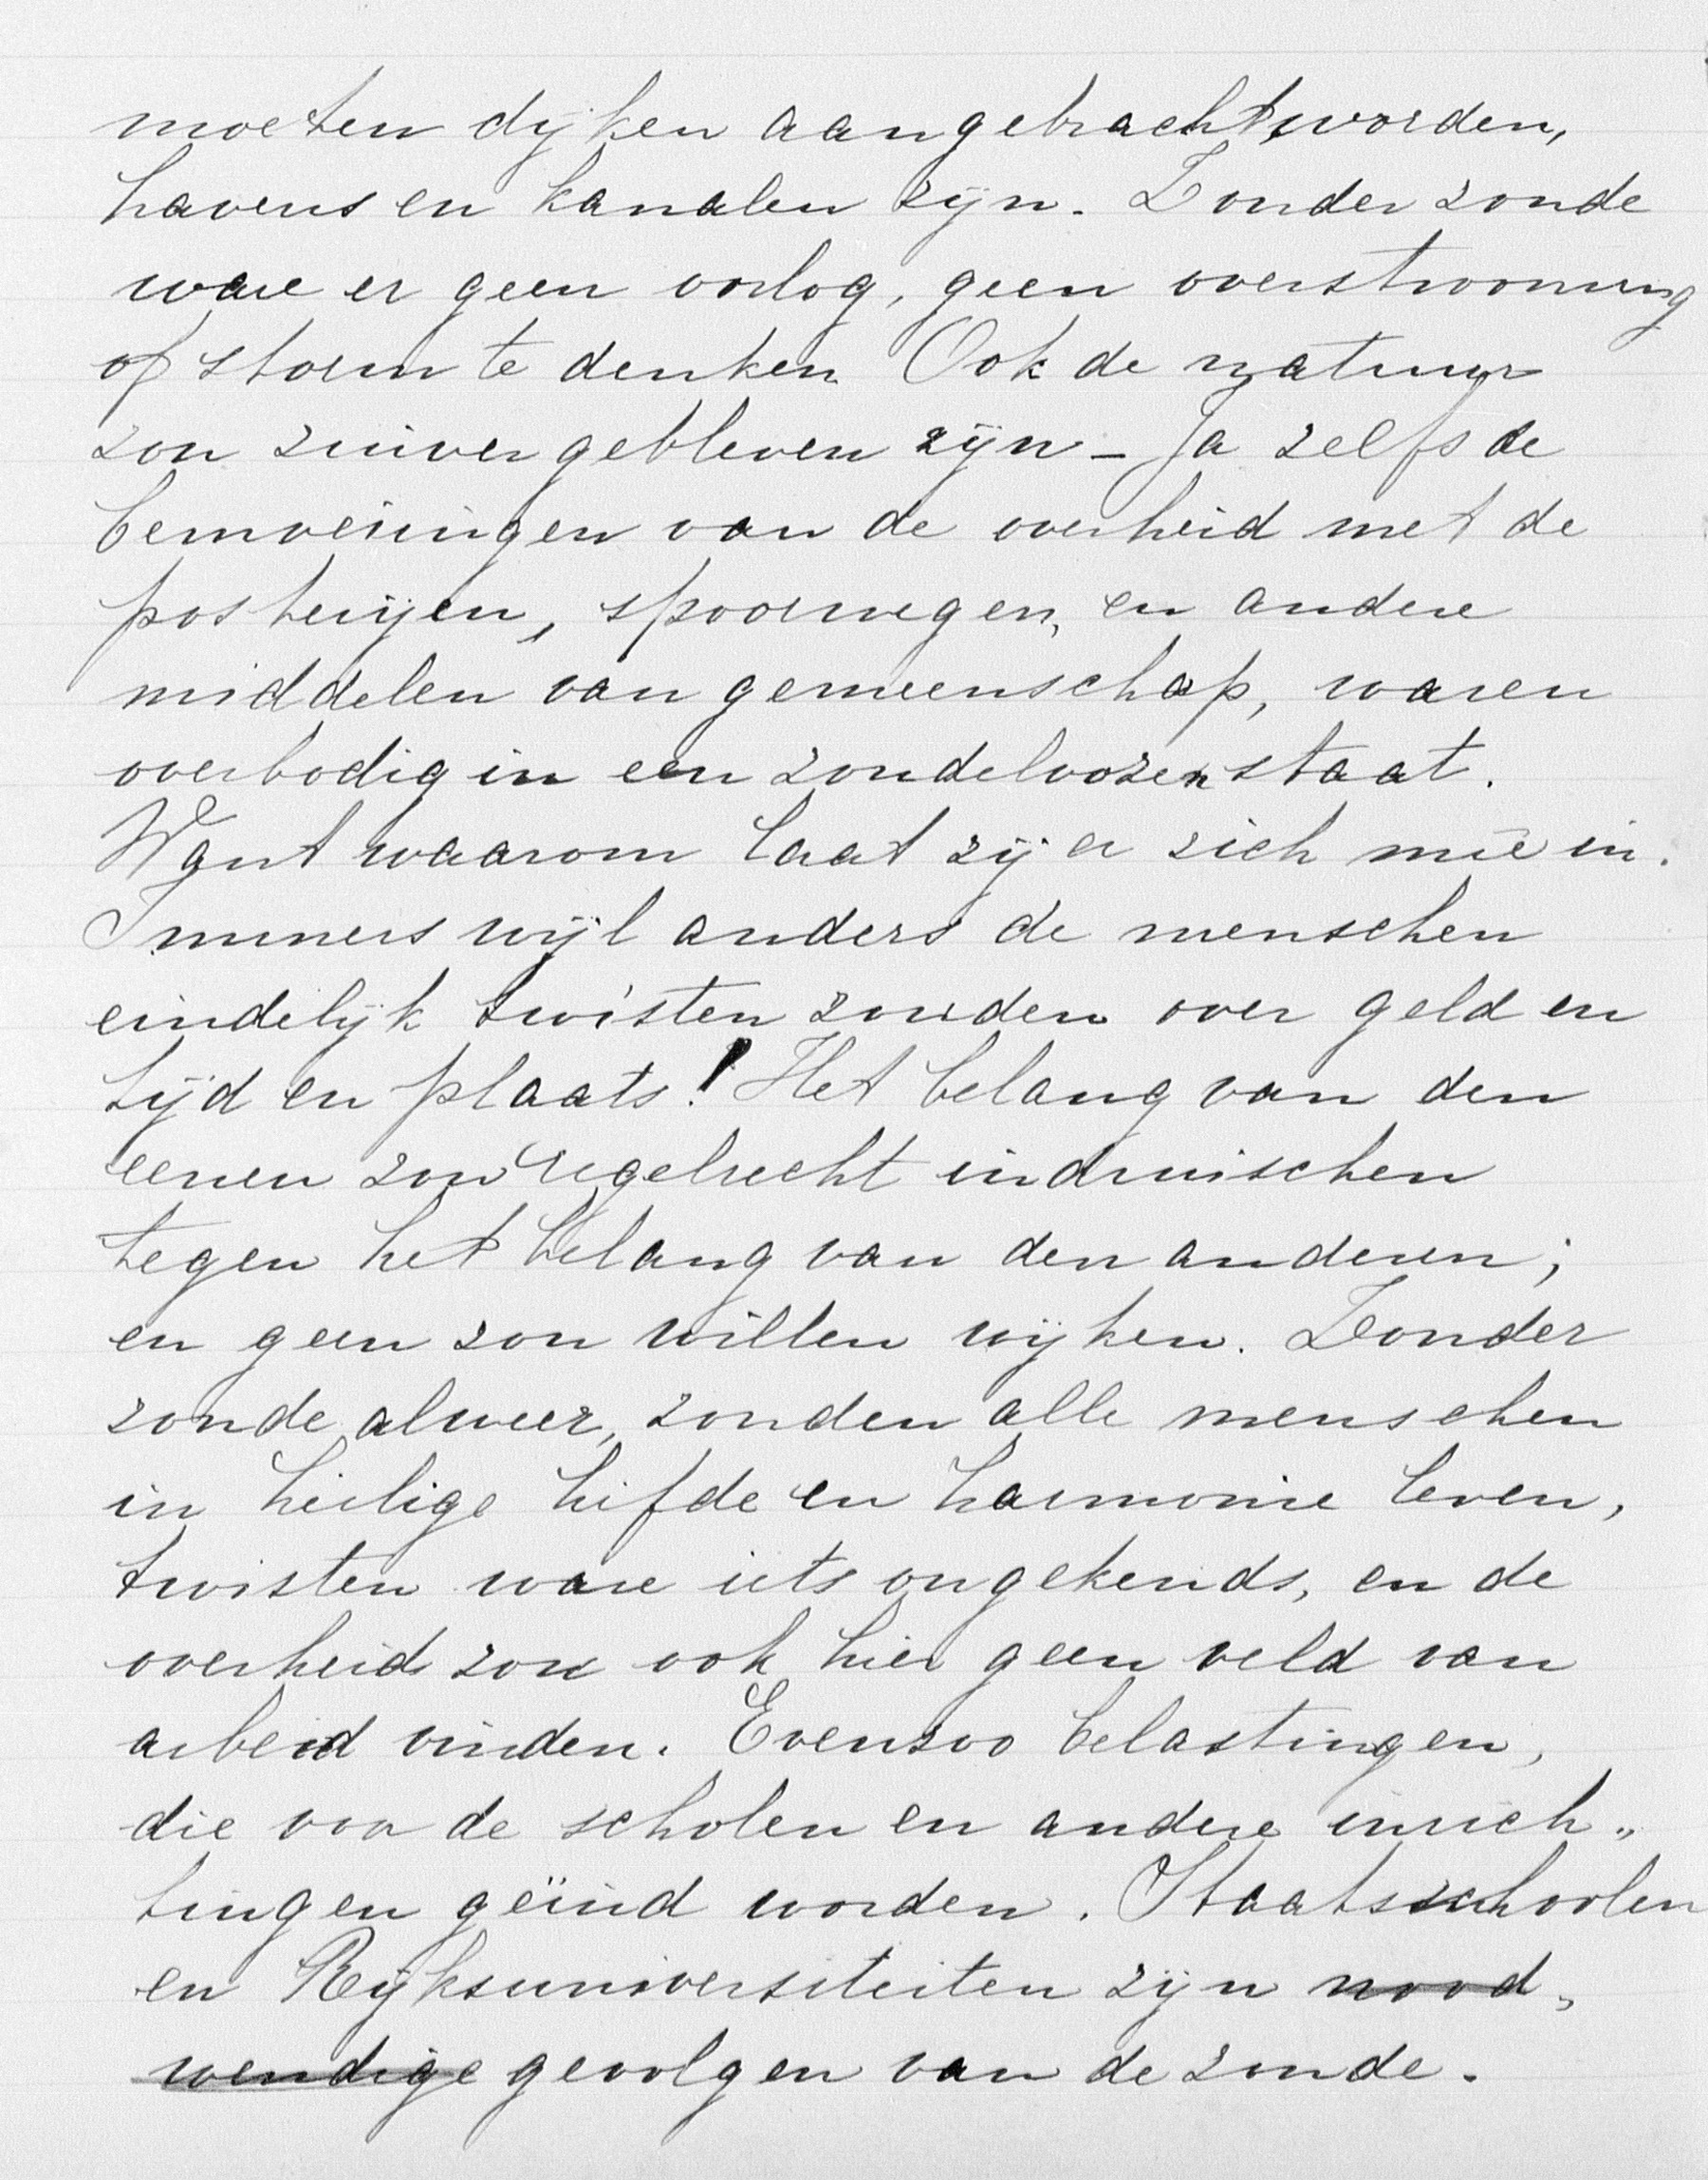 moeten dijken aangebracht, worden,
havens en kanalen zijn. Zonder zonde
ware er geen oorlog, geen overstrooming
of storm te denken. Ook de natuur
zou zuiver gebleven zijn - Ja zelfs de
bemoeiingen van de overheid met de
posterijen, spoorwegen, en andere
middelen van gemeenschap, waren
overbodig in een zondeloozen staat.
Want waarom laat zij er zich mee in.
Immers wijl anders de menschen
eindelijk twisten zouden over geld en
tijd en plaats! Het belang van den
eenen zou regelrecht indruischen
tegen het belang van den anderen;
en geen zou willen wijken. Zonder
zonde alweer, zouden alle menschen
in heilige liefde en harmonie leven,
twisten ware iets ongekends, en de
overheid zou ook hier geen veld van
arbeid vinden. Evenzoo belastingen,
die voor de scholen en andere inrich„
tingen geïnd worden. Staatsschoolen
en Rijksuniversiteiten zijn nood„
wendige gevolgen van de zonde.